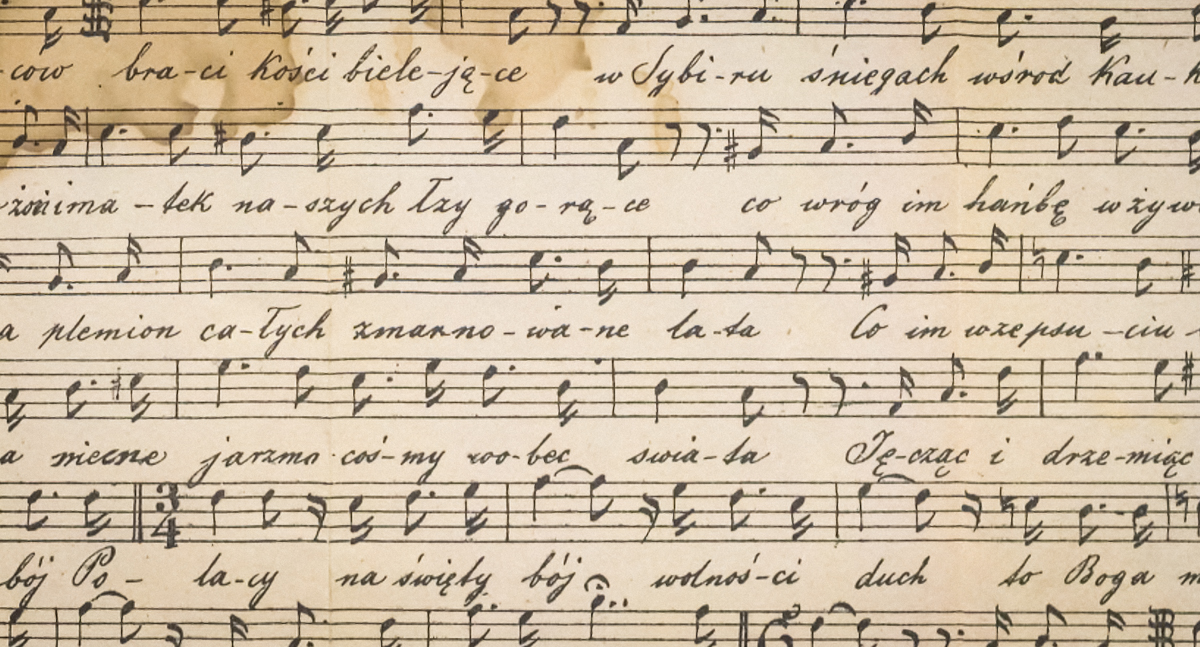 -cow bra-ci kości biele-ją-ce w Sybi-ru śniegach wśrod Kau-k
żon i ma-tek na-szych łzy go-rą-ce co wróg im hańbę w żyw
a plemion ca-łych zmarno-wa-ne la-ta Co im wzepsu-ciu-
a niecne jarzmo coś-my wo-bec swia-ta Ję-cząc i drze-miąc
3/4
bój Po-la-cy na święty bój wolnoś-ci duch to Boga m